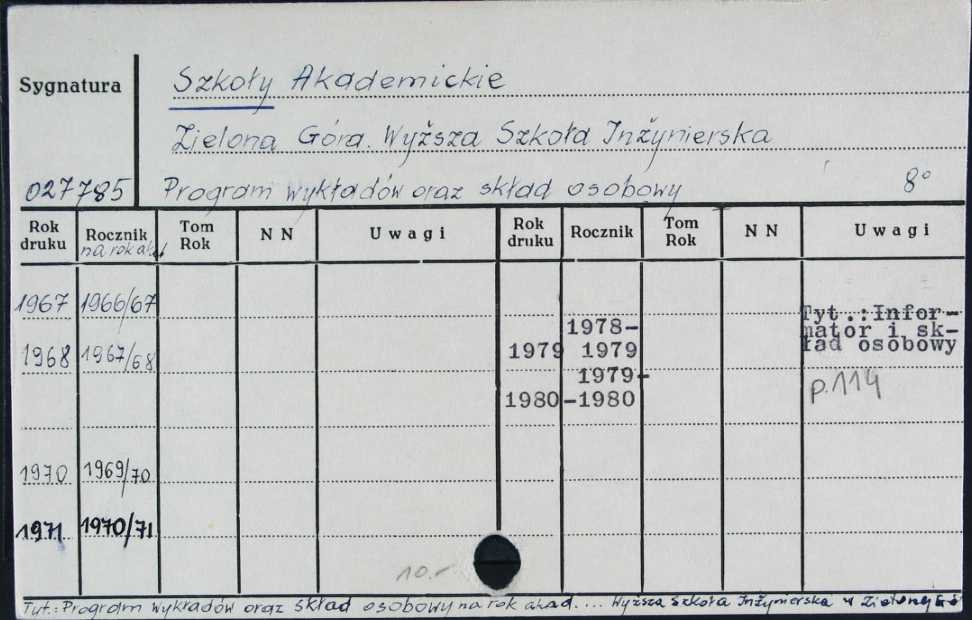 Szkoły Akademickie
Sygnatura
Zielona Góra. Wyższa Szkoła Inżynierska
027785 Program wykładów oraz skład osobowy 8°
Rok druku Rocznik na rok akad Tom Rok N N Uwagi Rok druku Rocznik Tom Rok N N Uwagi
1967 1966/67
Tyt.:Infor-
1978- mator i sk-
1968 1967/68 1979 1979 ład osobowy
1979-
p.114
1980-1980
1970 1969/70
1971 1970/71
10.-
Tyt.: Program wykładów oraz skład osobowy na rok akad. ... Wyższa Szkoła Inżynierska w Zielonej Gó